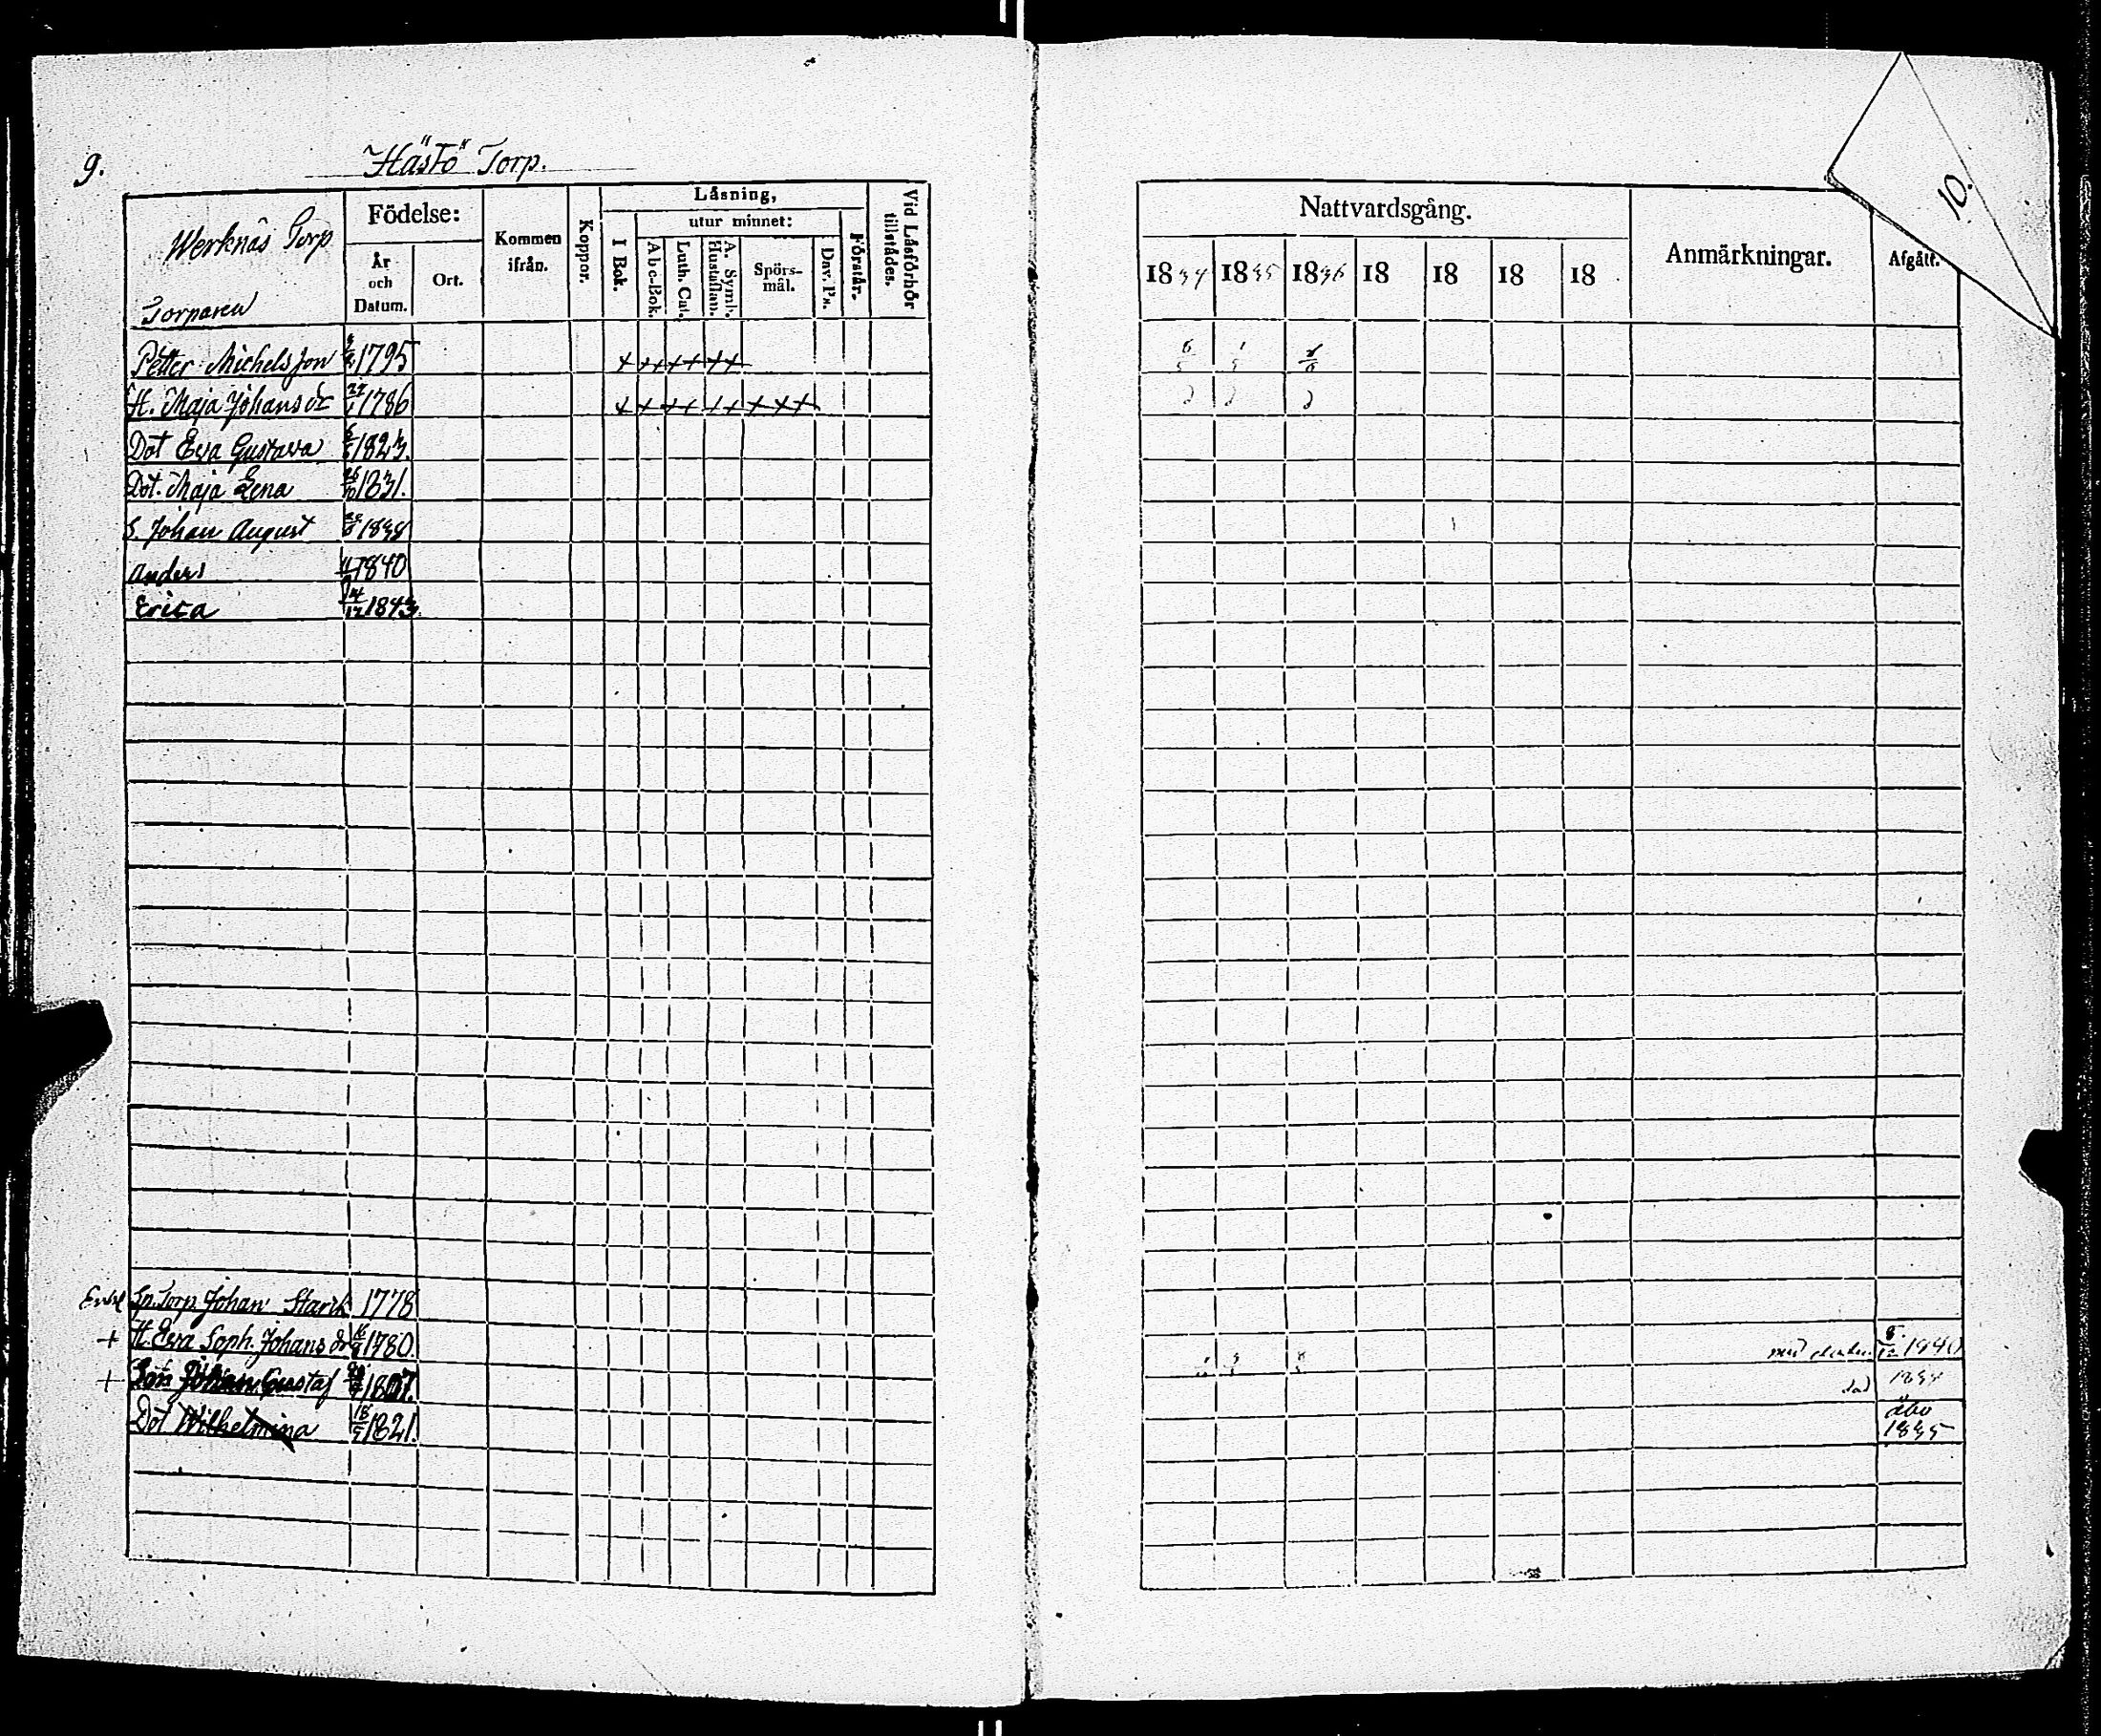 9.
"Hästö" Torp.
Werknäs Torp
Torparen
Födelse:
År och Datum.
Ort.
Kommen ifrån.
Koppor.
Låsning,
I Bok.
utur minnet:
Abc-Bok.
Luth. Cat.
A. Symb. Hustaflan.
Spörs-mål.
Dav. Ps.
Förstår.
Vid Låsförhör tillstådes.
Petter Michelsson 1795
H. Maja Johansdr 1786
Dot Eva Gustava 1823.
Dot. Maja Lena 1831.
S. Johan August
Anders 1840
Erica 14/12 1843.
Enkl Sp. Torp. Johan Stark 1778
+ H. Eva Soph. Johansdr 1780.
+ Son Johan Gustaf
Dot Wilhelmina 1821.
10.
Nattvardsgång.
1834 1835 1836 18 18 18 18
Anmärkningar.
Afgått.
1840
död
åbo
1835